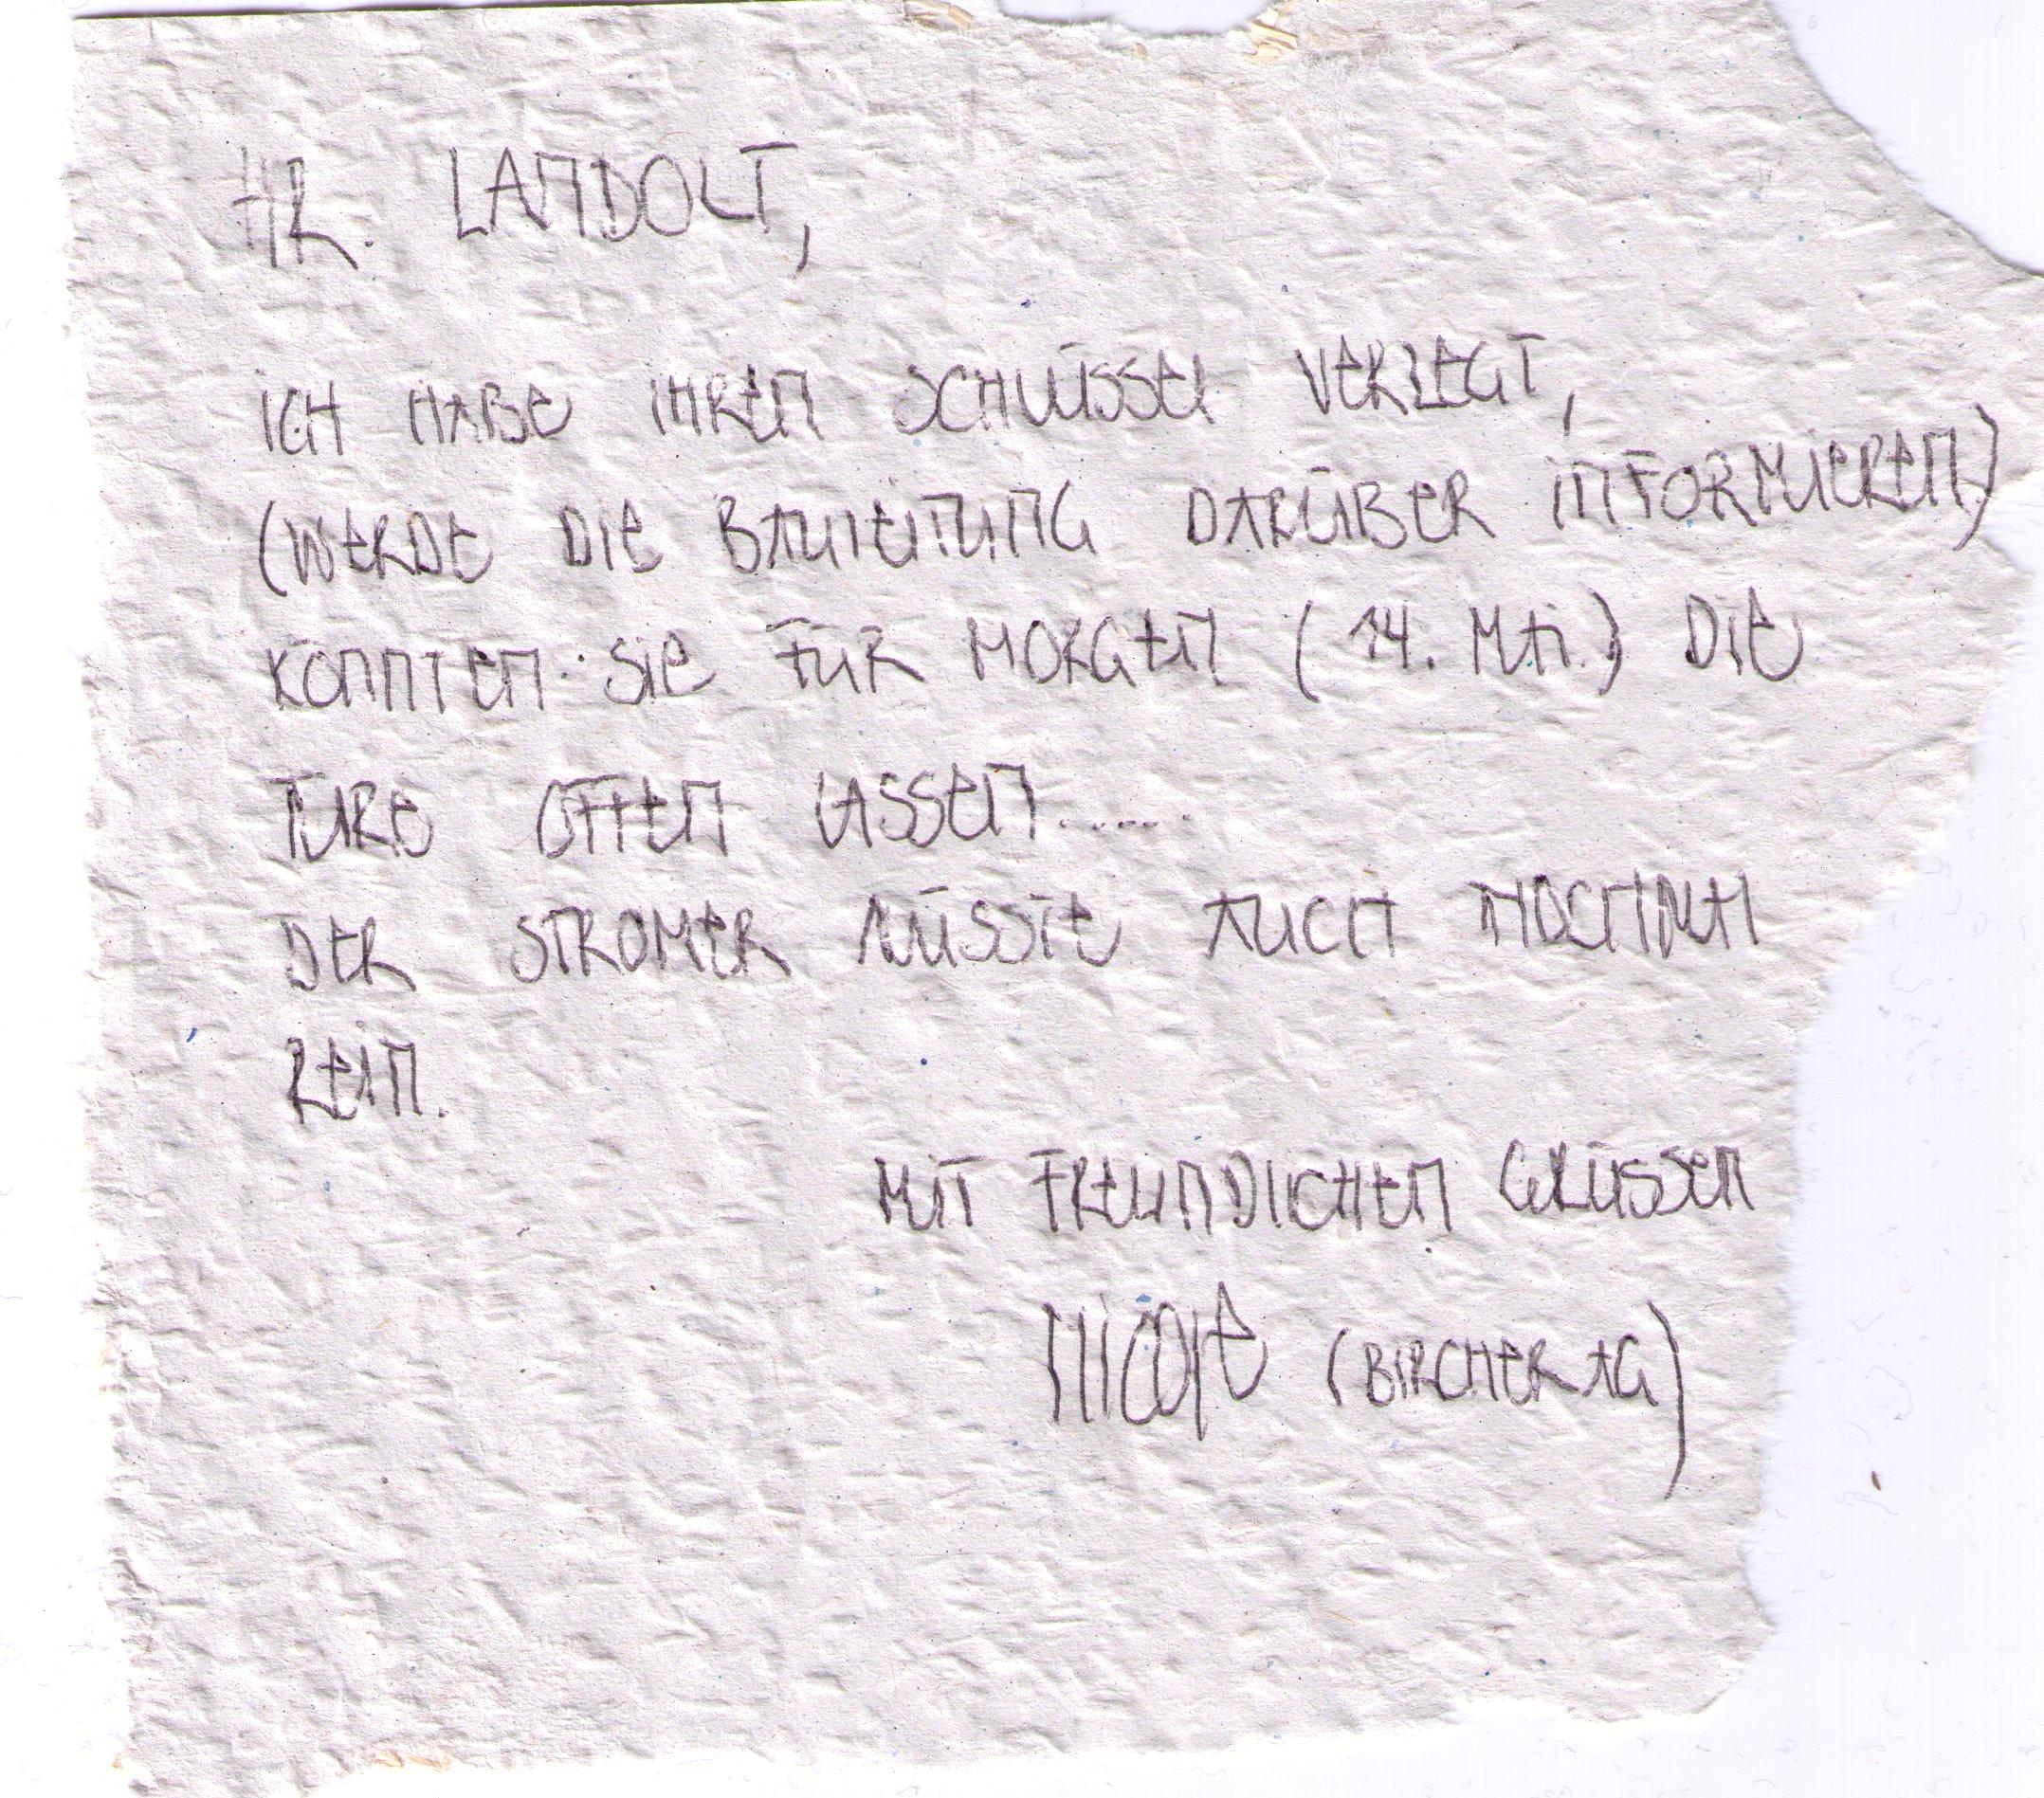 HR. LANDOLT,
ICH HABE IHREN SCHLÜSSEL VERLEGT,
(WERDE DIE BAULEITUNG DARÜBER INFORMIEREN)
KÖNNTEN SIE FÜR MORGEN (14. MAI.) DIE
TÜRE OFFEN LASSEN......
DER STROMER MÜSSTE AUCH NOCHMAL
REIN.
MIT FREUNDLICHEN GRÜSSEN
NICOLE (BIRCHER AG)